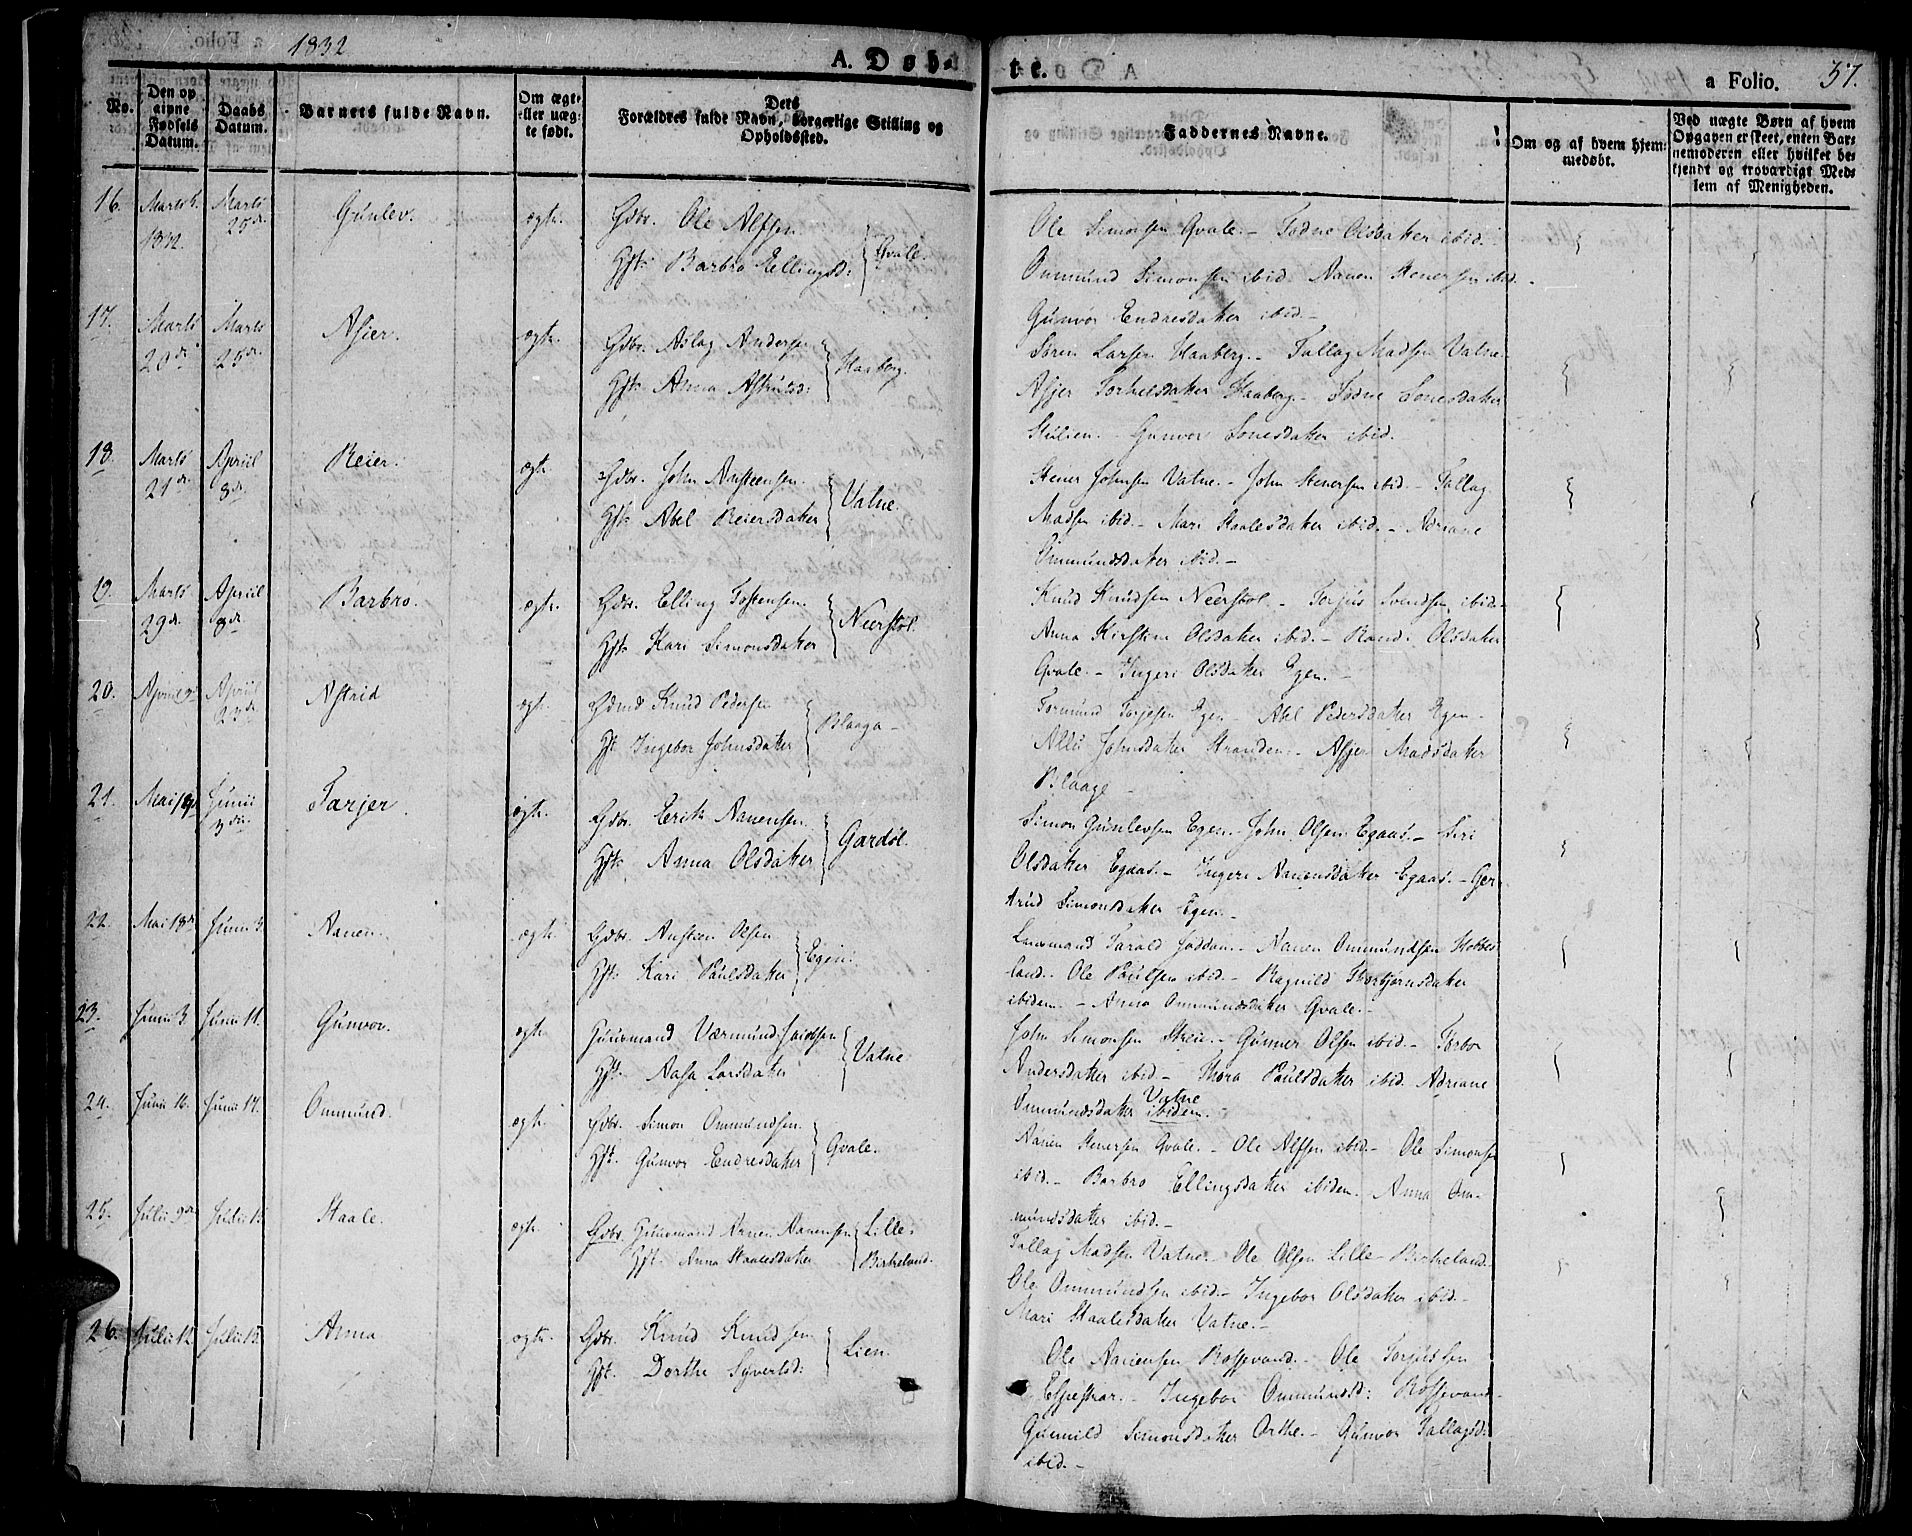 1832
A. Døbte.
a Folio. 57.
No.
Den opgivne Fødsels Datum.
Daabs Datum.
Barnets fulde Navn.
Om ægte eller uægte født.
Dets Forældres fulde Navn, borgerlige Stilling og Opholdssted.
Faddernes Navne.
Om og af hvem hjemmedøbt.
Ved uægte Børn af hvem Opgaven er skeet, enten Barnemoderen eller hvilket bekjendt og troværdigt Medlem af Menigheden.
16. Marts 1832. Marts 25de Gunlev. ægte. Gdbr. Ole Alfsen
Hst. Barbro Ellingsd: Qvale.
Ole Simonsen Qvale. - Todne Olsdatter ibid. -
Ommund Simonsen ibid. Aanen Stenersen ibid. -
Gunvor Endresdatter ibid. -
17. Marts 20de Marts 25de Asjer. ægte. Gdbr. Aslag Andersen
Hst. Anna Haaberg.
Søren Larsen Haaberg. - Tallag Madsen Vatne.
Asjer Torkelsdatter Haaberg. - Todne Tonesdatter
Gunvor Tonesdatter ibid.
18. Marts 21de April 8de Reier. ægte. Gdbr. John Austeensen.
Hst. Abel Reiersdatter Vatne.
Stener Johnsen Vatne. - John Stenersen ibid. - Tallag
Madsen ibid. - Mari Staalesdatter ibid. - Adriane
Ommundsdatter ibid. -
19. Marts 29de April 8de Barbro. ægte. Gdbr. Elling Tostensen.
Hst. Kari Simonsdatter Neerstøl.
Knud Knudsen Neerstøl - Torjus Svendsen ibid. -
Anna Kirstine Olsdatter ibid. - Rand. Olsdatter
Qvale. - Ingeri Olsdatter Egen. -
20. April April 23de Astrid ægte. Knud Pedersen
Hst Ingebor Johnsdatter Blaaga -
Tormund Torjesen Egen - Abel Pedersdatter Egen -
Johnsdatter Stranden. - Asjer Madsdatter
Blaage -
21. Mai Junii 3die. Tarjer ægte. Gdbr. Erik Aanensen.
Hst. Anna Olsdatter Gardøl.
Simon Gunlevsen Egen. - John Olsen Egaas. - Siri
Olsdatter Egaas. - Ingeri Aanensdatter Egaas. - Ger-
trud Simonsdatter Egen. -
22. Mai 18de Junii 3. Aanen. ægte. Gdbr. Austen Olsen
Hst. Kari Paulsdatter Egen.
Tarald Joddan. - Aanen Ommundsen
land. Ole Paulsen ibid. - Ragnild Thorbjørnsdatter
ibidem. - Anna Ommundsdatter Qvale. -
23. Junii 3. Junii 11. Gunvor. ægte. Huusmand Værmund
Hst. Aasa Larsdatter Vatne
John Simonsen - Gunner Olsen ibid. - Torbor
Andersdatter ibid - Thora Paulsdatter ibid. Adriane
Ommundsdatter ibidem. Vatne
24. Junii 16. Junii 17. Ommund. ægte. Gdbr. Simon Ommundsen.
Hst. Gunvor Endresdatter Qvale.
Aanen Stenersen Qvale. - Ole Alfsen ibid. - Ole Simonsen
ibid. - Barbro Ellingsdatter ibidem. Anna Om-
mundsdatter ibid. -
25. Julii 9de Julii 15. Staale. ægte. Gdbr. Huusmand Aanen Aanensen
Hst. Anna Staalesdatter Lille-Birkeland.
Tallag Madsen Vatne. - Ole Olsen Lille-Birkeland.
Ole Ommundsen ibid. - Ingebor Olsdatter ibid. -
Mari Staalesdatter Vatne. -
26. Julii 12. Julii 15. Anna ægte. Gdbr. Knud Knudsen
Hst. Dorthe Syvertsd: Lien.
Ole Aanensen Rossevand. - Ole Torjussen
Ingebor Ommundsd: Rossevand -
Gunnild Simonsdatter - Gunvor Tallagsd:
ibid. -